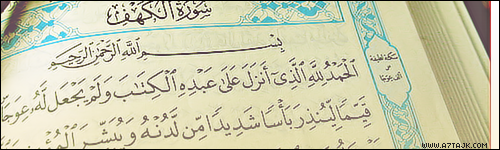 سُورَةُ الْكَهْفِ
بِسْمِ اللَّهِ الرَّحْمَٰنِ الرَّحِيمِ
الْحَمْدُ لِلَّهِ الَّذِي أَنزَلَ عَلَىٰ عَبْدِهِ الْكِتَابَ وَلَمْ يَجْعَل لَّهُ عِوَجًا
قَيِّمًا لِّيُنذِرَ بَأْسًا شَدِيدًا مِّن لَّدُنْهُ وَيُبَشِّرَ
WWW.A7TAJK.COM